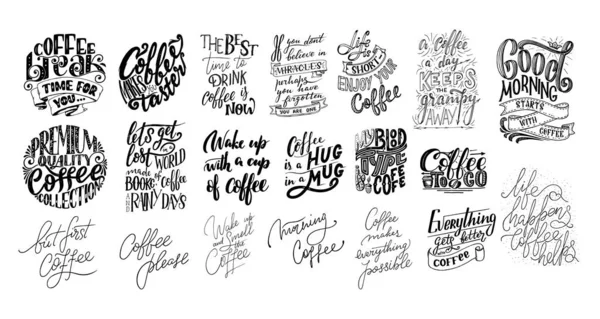 COFFEE
break
TIME FOR
YOU...
Coffee
makes
taster
THE BEST
time to
DRINK
Coffee is
NOW
If you don't
believe in
MIRACLES
perhaps
you have
forgotten
YOU ARE ONE
Life
is
SHORT
ENJOY YOUR
Coffee
a coffee
a day
KEEPS
the
grumpy
AWAY
Good
MORNING
STARTS
WITH
COFFEE
PREMIUM
QUALITY
Coffee
COLLECTION
let's get
lost
WORLD
made
of
BOOKS
Coffee
AND
RAINY DAYS
Wake up
with a cup
of coffee
Coffee
is a HUG
in a MUG
MY BLOOD
TYPE
IS
COFE
Coffee
TO GO
but first
Coffee
Coffee
please
Wake up
and Smell
the
Coffee
morning
Coffee
Coffee
makes
everything
possible
Everything
gets better
with
COFFEE
life
happens
Coffee
helps